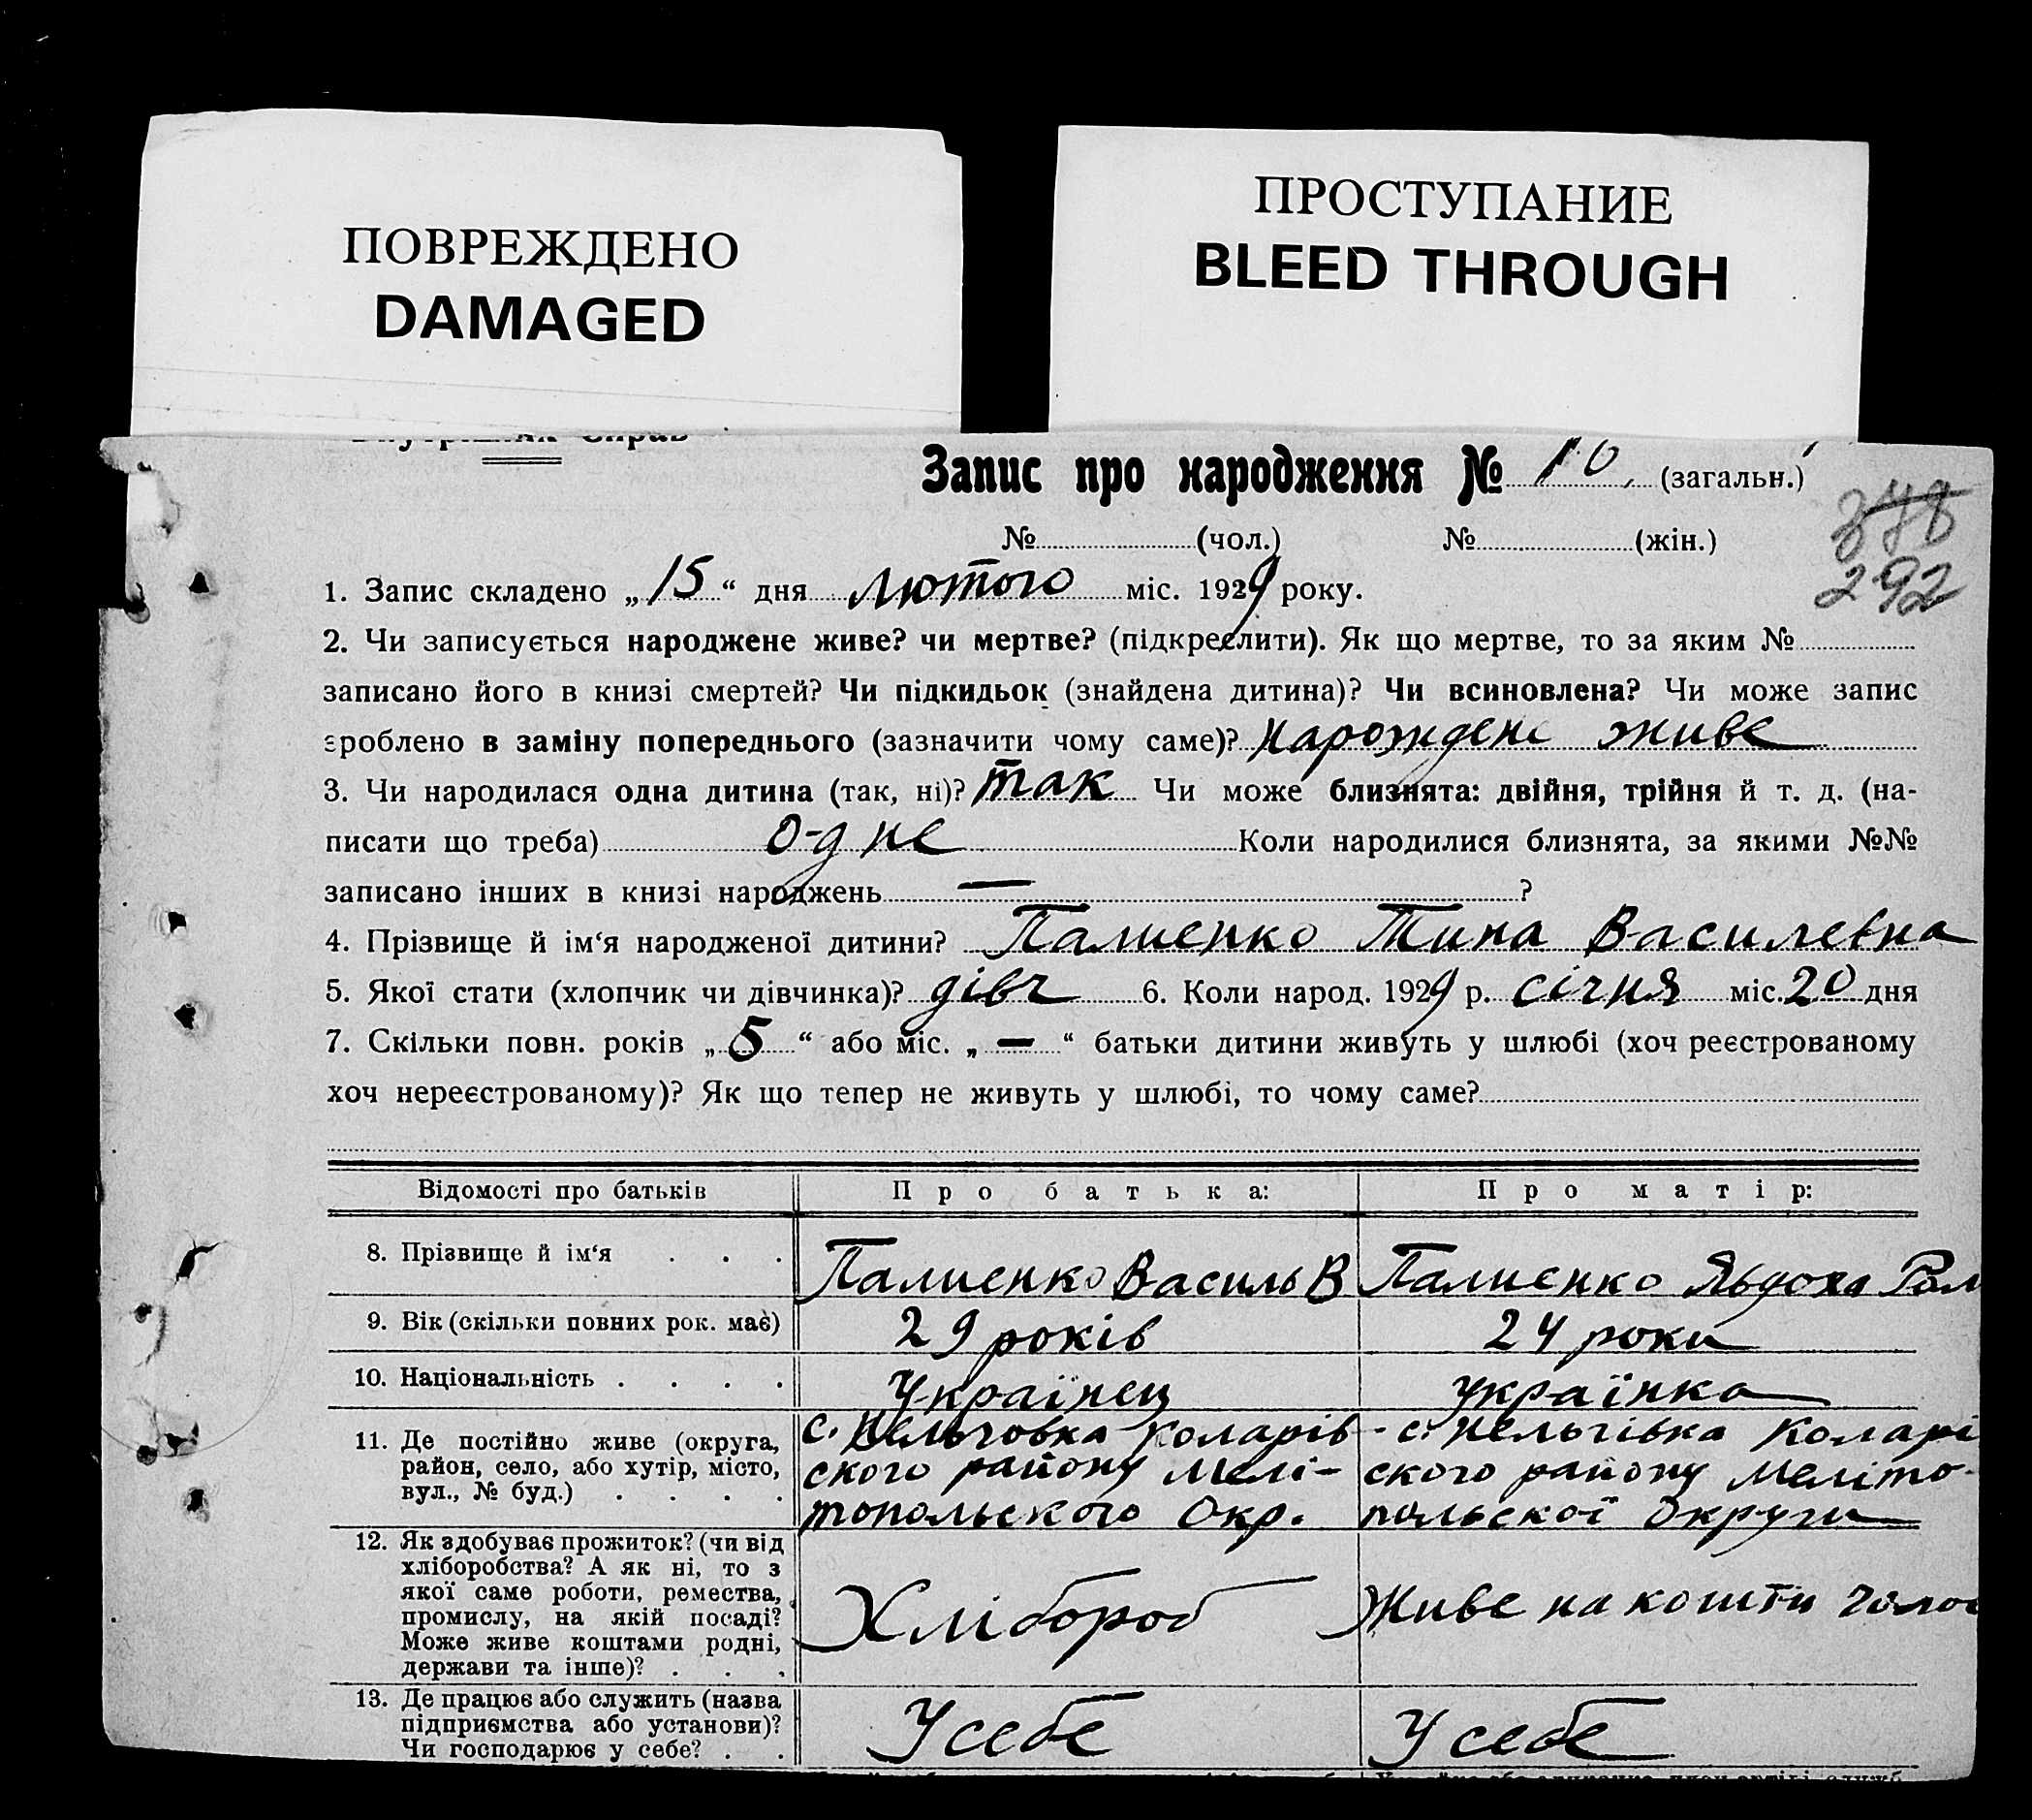 ПОВРЕЖДЕНО
DAMAGED
ПРОСТУПАНИЕ
BLEED THROUGH
Внутрішніх Справ
Запис про народження № 10 (загальн.)
378
№ (чол.) № (жін.)
292
1. Запис складено „15“ дня лютого міс. 1929 року.
2. Чи записується народжене живе? чи мертве? (підкреслити). Як що мертве, то за яким №
записано його в книзі смертей? Чи підкидьок (знайдена дитина)? Чи всиновлена? Чи може запис
зроблено в заміну попереднього (зазначити чому саме)? нарождене живе
3. Чи народилася одна дитина (так, ні)? так Чи може близнята: двійня, трійня й т. д. (на-
писати що треба) одне Коли народилися близнята, за якими №№
записано інших в книзі народжень — ?
4. Прізвище й ім‘я народженої дитини? Палиенко Тина Василевна
5. Якої стати (хлопчик чи дівчинка)? дівч 6. Коли народ. 1929 р. січня міс. 20 дня
7. Скільки повн. років „5“ або міс. „—“ батьки дитини живуть у шлюбі (хоч реєстрованому
хоч нереєстрованому)? Як що тепер не живуть у шлюбі, то чому саме?
Відомості про батьків Про батька: Про матір:
8. Прізвище й ім‘я . . . Палиенко Василь В Палиєнко Явдоха Ром
9. Вік (скільки повних рок. має) 29 років 24 роки
10. Національність . . . . Українец українка
11. Де постійно живе (округа,
район, село, або хутір, місто,
вул., № буд.) . . . .
с. Нельговка коларів-
ского району Мелі-
топольского Окр.
с. Нельгівка Коларі
ского району Меліто-
польскої Округи
12. Як здобуває прожиток? (чи від
хліборобства? А як ні, то з
якої саме роботи, ремества,
промислу, на якій посаді?
Може живе коштами родні,
держави та інше)? . . .
Хлібороб
Живе на кошти чоло
13. Де працює або служить (назва
підприємства або установи)?
Чи господарює у себе? . .
У себе
У себе